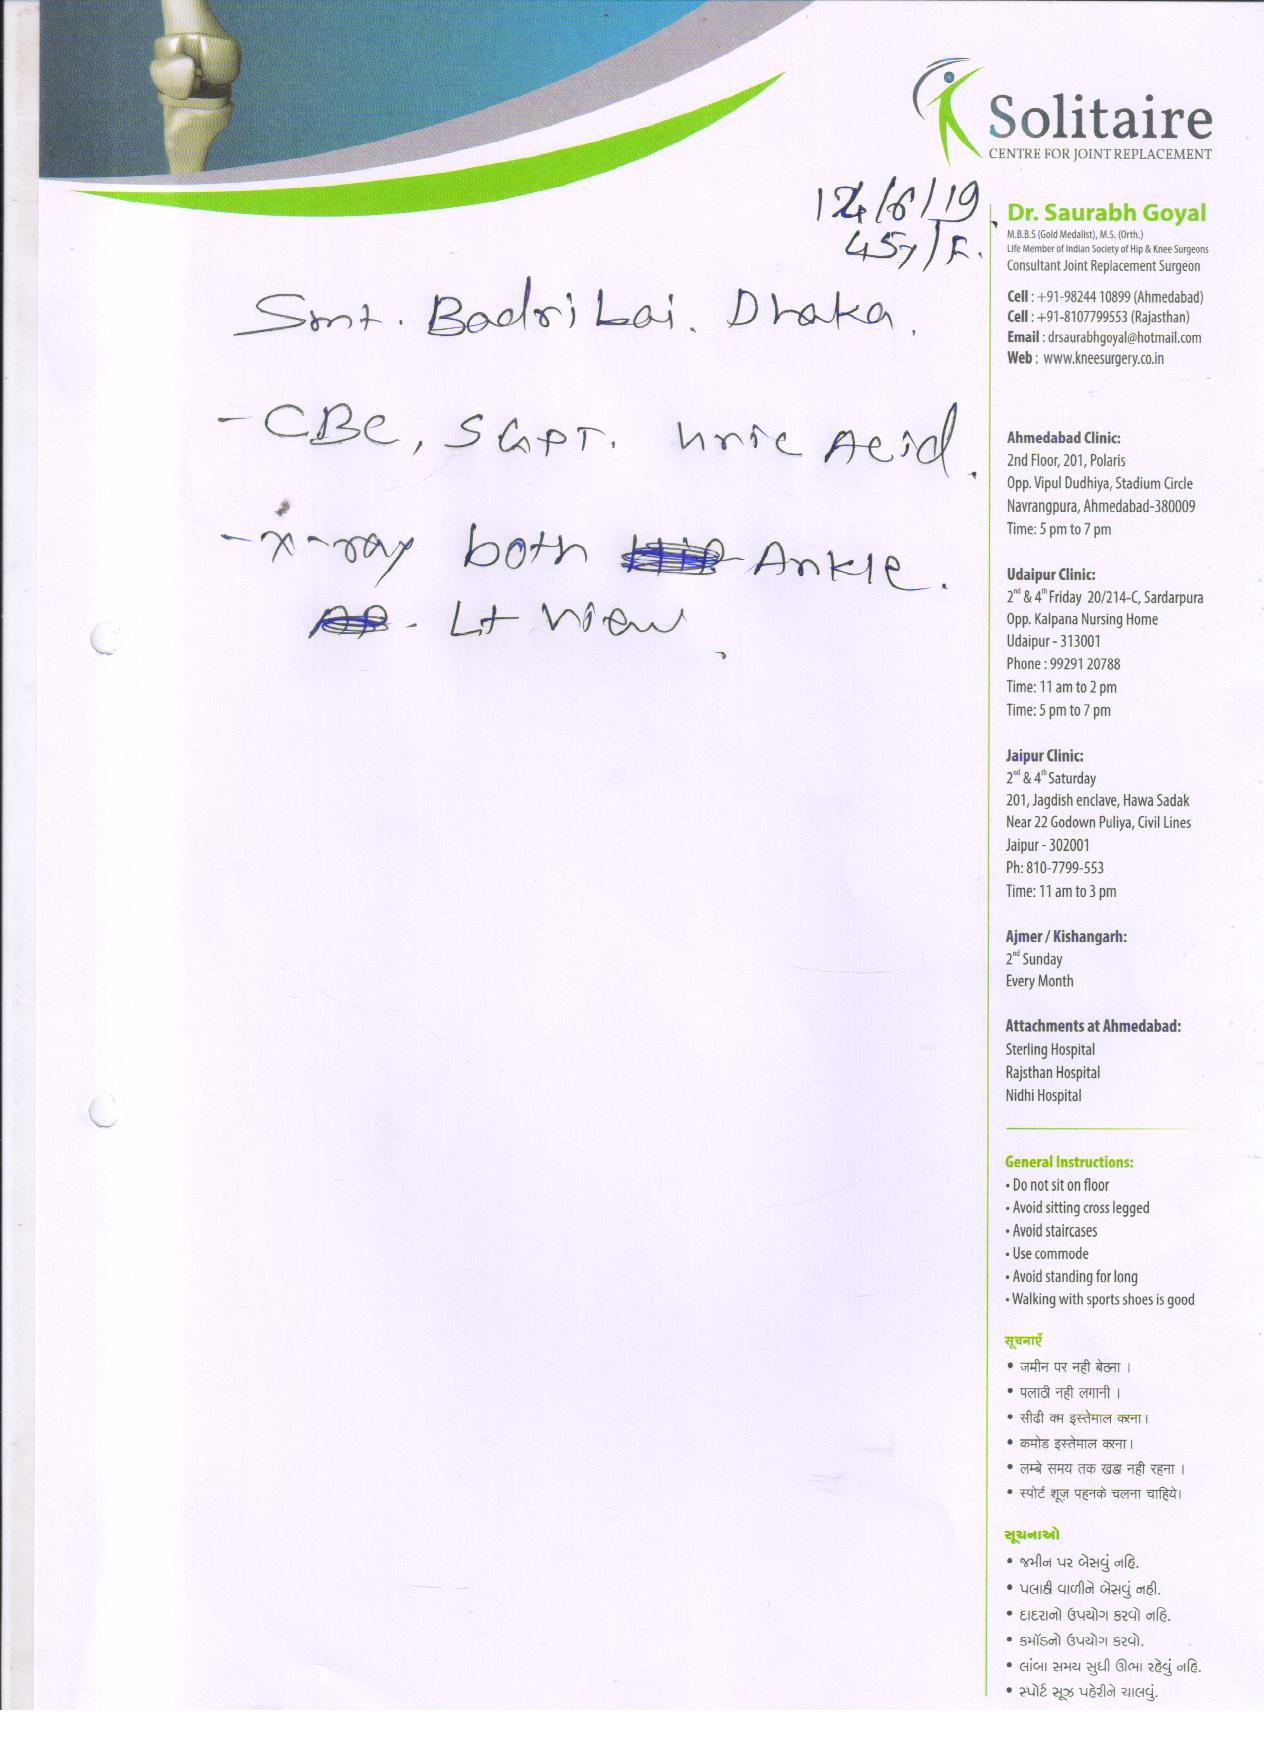 Solitaire
CENTRE FOR JOINT REPLACEMENT
12/6/19
45y/F.
Smt. Badri Lai. Dhaka.
- CBC, SGPT. Uric Acid.
- X-ray both Ankle.
Lt View
Dr. Saurabh Goyal
M.B.B.S (Gold Medalist), M.S. (Orth.)
Life Member of Indian Society of Hip & Knee Surgeons
Consultant Joint Replacement Surgeon
Cell : +91-98244 10899 (Ahmedabad)
Cell : +91-8107799553 (Rajasthan)
Email : drsaurabhgoyal@hotmail.com
Web : www.kneesurgery.co.in
Ahmedabad Clinic:
2nd Floor, 201, Polaris
Opp. Vipul Dudhiya, Stadium Circle
Navrangpura, Ahmedabad-380009
Time: 5 pm to 7 pm
Udaipur Clinic:
2nd & 4th Friday 20/214-C, Sardarpura
Opp. Kalpana Nursing Home
Udaipur - 313001
Phone : 99291 20788
Time: 11 am to 2 pm
Time: 5 pm to 7 pm
Jaipur Clinic:
2nd & 4th Saturday
201, Jagdish enclave, Hawa Sadak
Near 22 Godown Puliya, Civil Lines
Jaipur - 302001
Ph: 810-7799-553
Time: 11 am to 3 pm
Ajmer / Kishangarh:
2nd Sunday
Every Month
Attachments at Ahmedabad:
Sterling Hospital
Rajsthan Hospital
Nidhi Hospital
General Instructions:
• Do not sit on floor
• Avoid sitting cross legged
• Avoid staircases
• Use commode
• Avoid standing for long
• Walking with sports shoes is good
सूचनाएँ
• जमीन पर नही बेठना ।
• पलाठी नही लगानी ।
• सीढी कम इस्तेमाल करना।
• कमोड इस्तेमाल करना।
• लम्बे समय तक खडा नही रहना ।
• स्पोर्ट शूज़ पहनके चलना चाहिये।
સૂચનાઓ
• જમીન પર બેસવું નહિ.
• પલાઠી વાળીને બેસવું નહી.
• દાદરાનો ઉપયોગ કરવો નહિ.
• કમૉડનો ઉપયોગ કરવો.
• લાંબા સમય સુધી ઊભા રહેવું નહિ.
• સ્પોર્ટ સૂઝ પહેરીને ચાલવું.